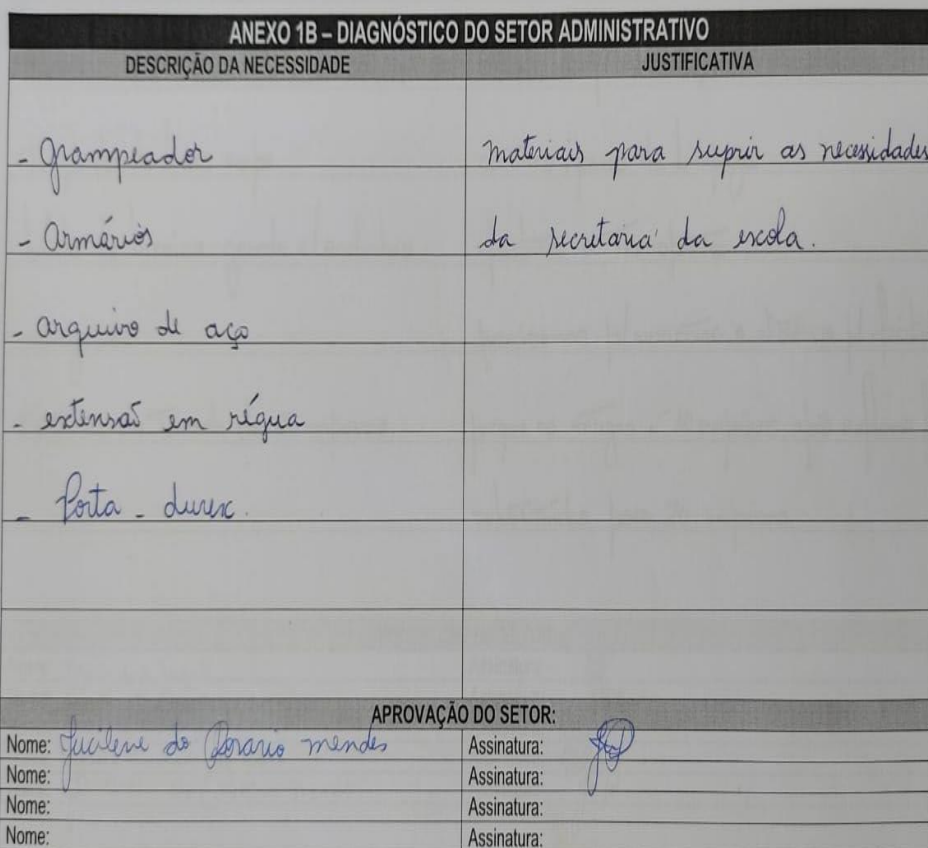 ANEXO 1B – DIAGNÓSTICO DO SETOR ADMINISTRATIVO
DESCRIÇÃO DA NECESSIDADE JUSTIFICATIVA
- Grampeador materiais para suprir as necessidades
- Armários da secretaria da escola.
- arquivo de aço
- extensão em régua
- Porta - durex.
APROVAÇÃO DO SETOR:
Nome: Jucilene do Rosario mendes Assinatura:
Nome: Assinatura:
Nome: Assinatura:
Nome: Assinatura: